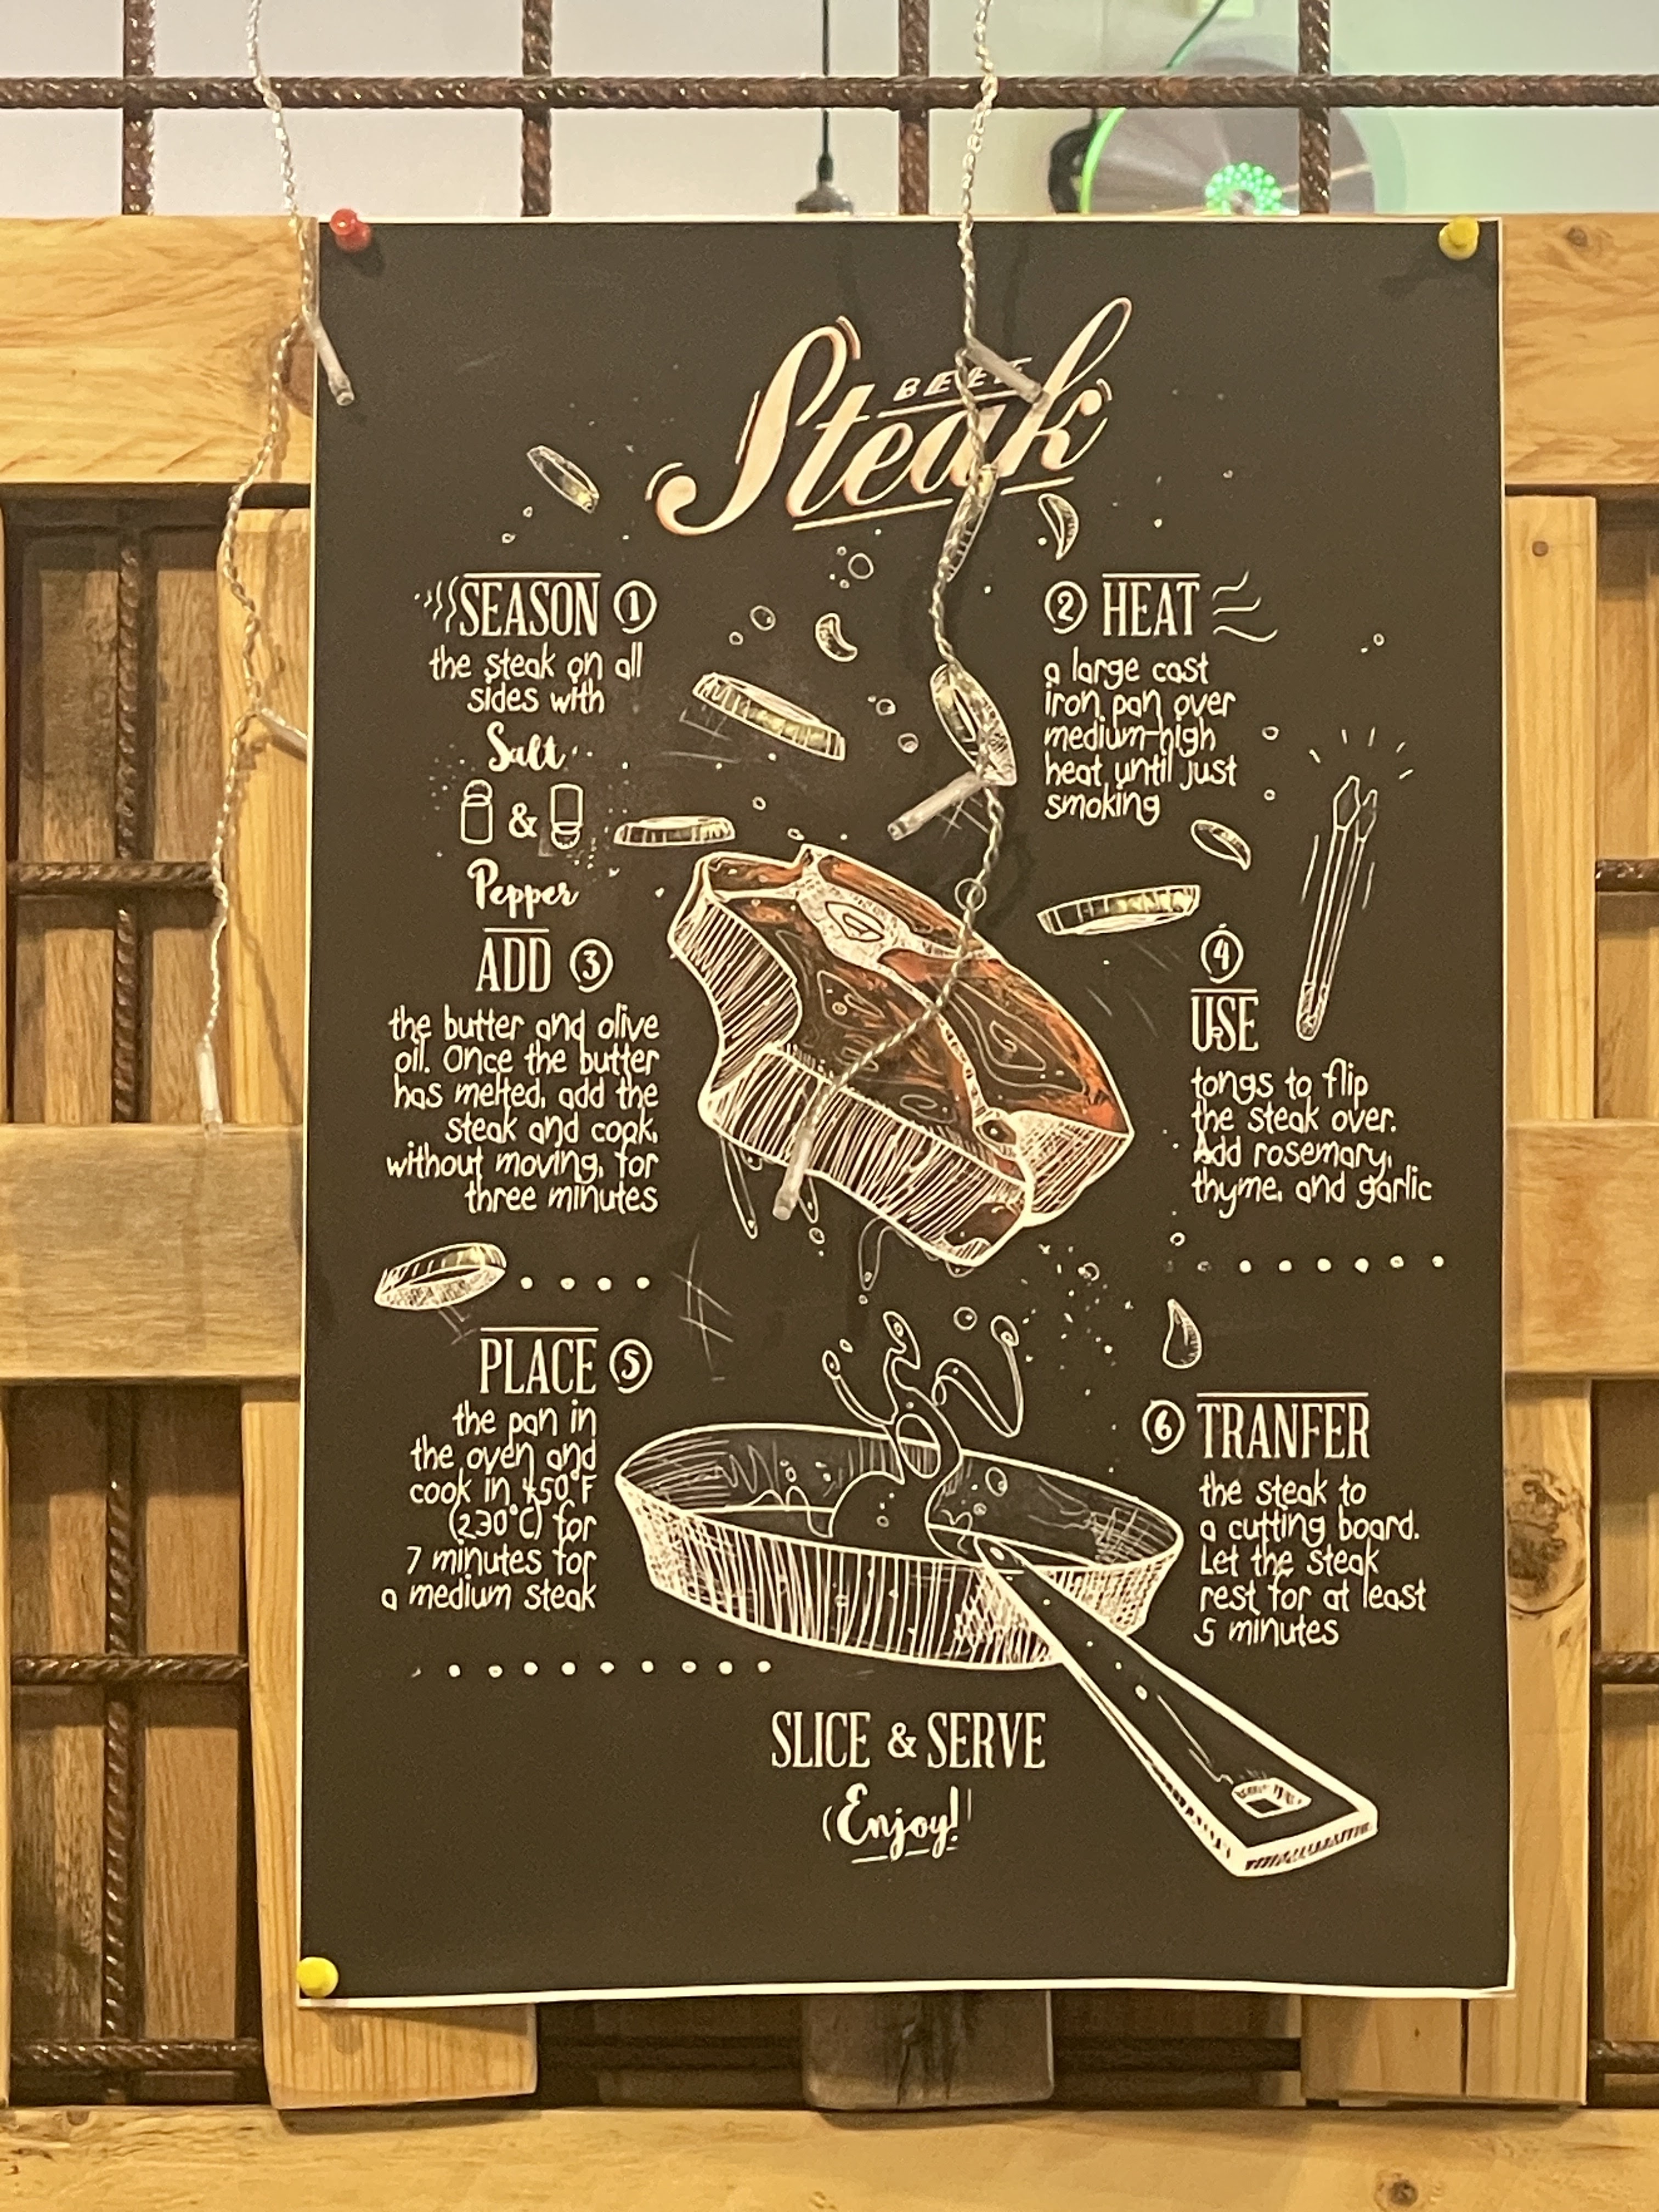 BEEF
Steak
SEASON 1
the steak on all
sides with
Salt
&
Pepper
2 HEAT
a large cast
iron pan over
medium-high
heat until just
smoking
ADD 3
the butter and olive
oil. Once the butter
has melted, add the
steak and cook,
without moving, for
three minutes
4
USE
tongs to flip
the steak over.
Add rosemary,
thyme, and garlic
PLACE 5
the pan in
the oven and
cook in 450°F
(230°C) for
7 minutes for
a medium steak
6 TRANFER
the steak to
a cutting board.
Let the steak
rest for at least
5 minutes
SLICE & SERVE
Enjoy!